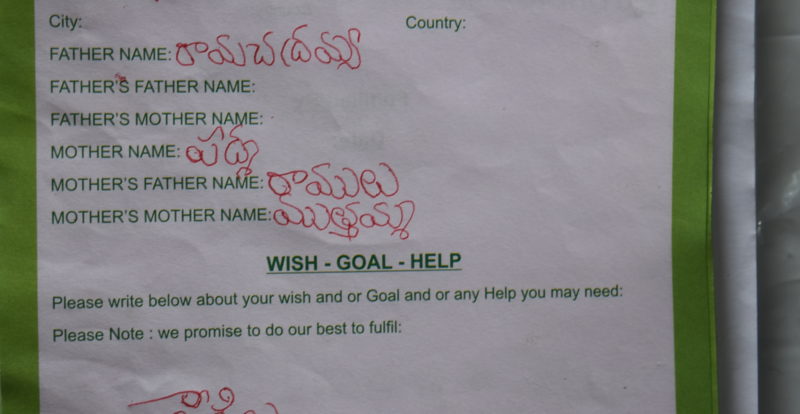 City: Country:
FATHER NAME: రామచద్రమ్మ
FATHER'S FATHER NAME:
FATHER'S MOTHER NAME:
MOTHER NAME: పద్మ
MOTHER'S FATHER NAME: రాములు
MOTHER'S MOTHER NAME: ముత్తమ్మ
WISH - GOAL - HELP
Please write below about your wish and or Goal and or any Help you may need:
Please Note : we promise to do our best to fulfil: